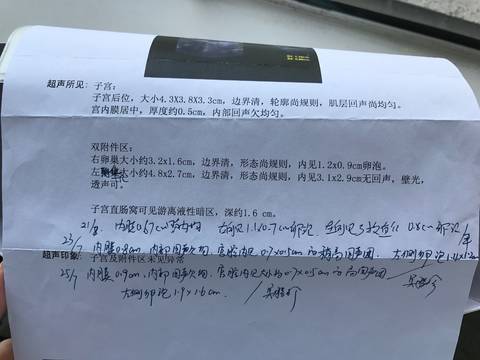 超声所见：子宫：
子宫后位，大小4.3X3.8X3.3cm，边界清，轮廓尚规则，肌层回声尚均匀。
宫内膜居中，厚度约0.5cm，内部回声欠均匀。
双附件区：
右卵巢大小约3.2x1.6cm，边界清，形态尚规则，内见1.2x0.9cm卵泡。
左 大小约4.8x2.7cm，边界清，形态尚规则，内见3.1x2.9cm无回声，壁光，
透声可。
子宫直肠窝可见游离液性暗区，深约1.6 cm。
21/7 内膜0.67cm 右侧 1.1x0.7cm卵泡 左侧 0.8cm卵泡
23/7 内膜0.8cm，内部回声欠均，宫腔内见0.7x0.5cm 高回声团 右侧卵泡1.4x1.2cm
超声印象：子宫及附件区未见异常
25/7 内膜0.9cm，内部回声欠均，宫腔内见大小约0.7x0.5cm高回声团
右侧卵泡1.9x1.6cm